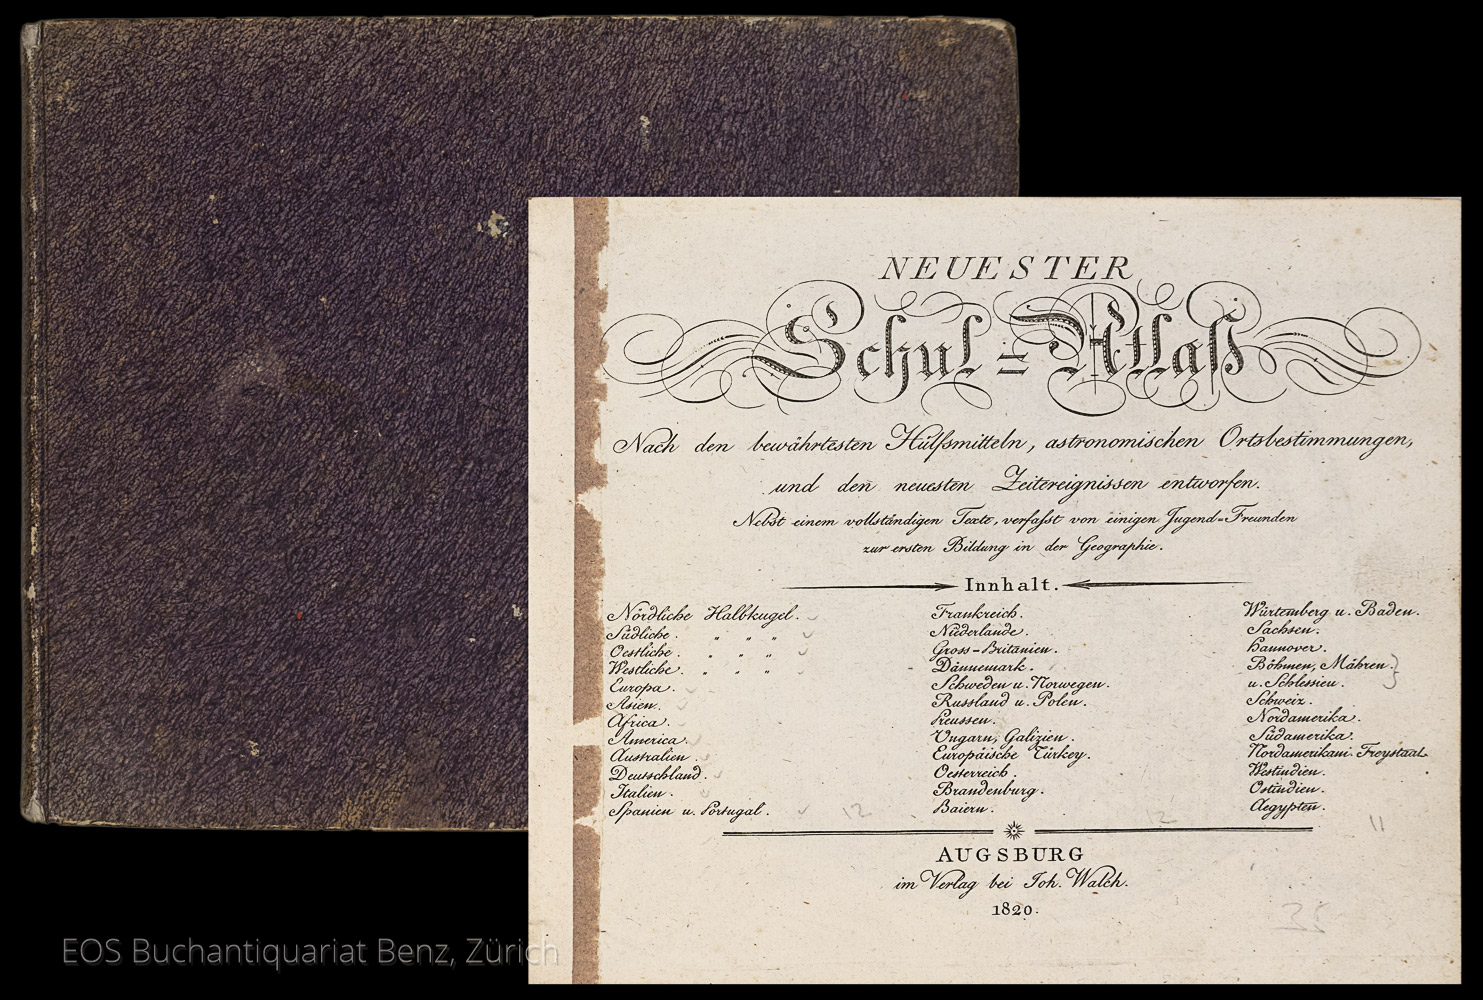 NEUESTER
Schul=Atlaß
Nach den bewährtesten Hülfsmitteln, astronomischen Ortsbestimmungen,
und den neuesten Zeitereignissen entworfen.
Nebst einem vollständigen Texte, verfaſst von einigen Jugend=Freunden
zur ersten Bildung in der Geographie.
Innhalt.
Nördliche Halbkugel.
Südliche. " " "
Oestliche. " " "
Westliche. " " "
Europa.
Asien.
Africa.
America.
Australien.
Deutschland.
Italien.
Spanien u. Portugal.
12
Frankreich.
Niederlande.
Gross=Britanien.
Dännemark.
Schweden u. Norwegen.
Russland u. Polen.
Preussen.
Ungarn, Galizien.
Europäische Türkey.
Oesterreich.
Brandenburg.
Baiern.
12
Würtemberg u. Baden.
Sachsen.
Hannover.
Böhmen, Mähren
u. Schlesien.
Schweiz.
Nordamerika.
Südamerika.
Nordamerikani. Freystaat
Westindien.
Ostindien.
Aegypten.
11
AUGSBURG
im Verlag bei Joh. Walch.
1820.
35
EOS Buchantiquariat Benz, Zürich